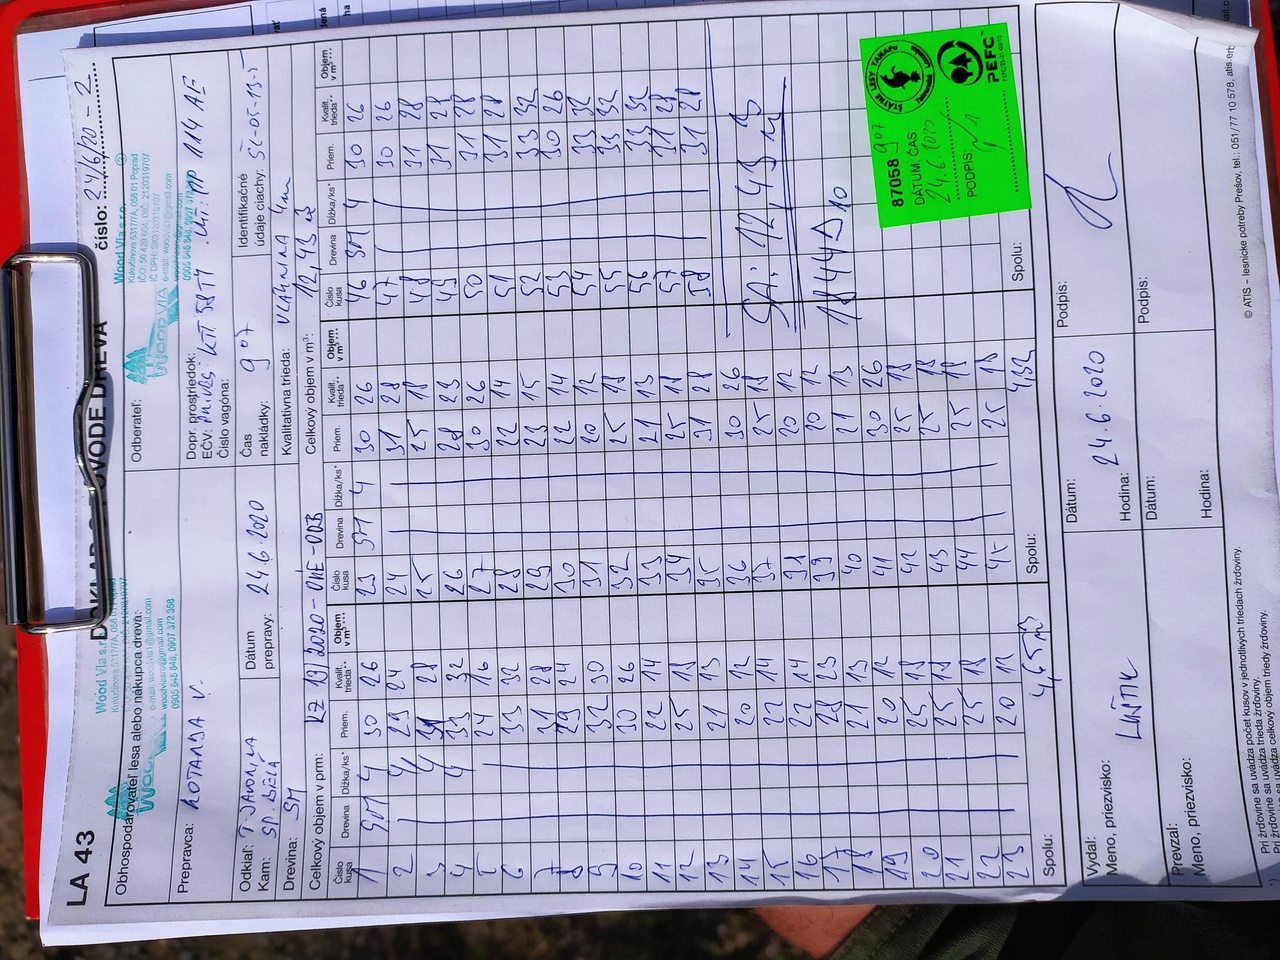 LA 43
DOKLAD O PÔVODE DREVA
číslo: 24/6/20 - 2
Obhospodarovateľ lesa alebo nákupca dreva:
Wood Via s.r.o.
Odberateľ:
Wood Via s.r.o.
Kukučínova 5317/7A, 058 01 Poprad
WOOD VIA
Prepravca: KOTANDA V.
Dopr. prostriedok:
EČV:
Číslo vagóna:
Odkiaľ: T. JAVORINA
Kam: SP. BELÁ
Dátum
prepravy: 24.6.2020
Čas
nakládky: 9 07
Identifikačné
údaje ciachy: SL-05-13-5
Drevina: SM
Kvalitatívna trieda: VLÁKNINA 4m
Celkový objem v prm:
Celkový objem v m³: 12,43
Číslo kusa Drevina Dĺžka/ks* Priem. Kvalit. trieda** Objem v m³***
1 SM 4 30 26
2 4 29 24
3 4 31 28
4 4 33 32
5 24 16
6 33 32
7 31 28
8 29 24
9 32 30
10 30 26
11 22 14
12 25 18
13 21 13
14 20 12
15 22 14
16 22 14
17 28 23
18 21 13
19 20 12
20 25 18
21 25 18
22 25 18
23 20 12
Spolu: 4,65 m³
Číslo kusa Drevina Dĺžka/ks* Priem. Kvalit. trieda** Objem v m³***
23 SM 4 30 26
24 31 28
25 25 18
26 28 23
27 30 26
28 22 14
29 23 15
30 22 14
31 20 12
32 25 18
33 21 13
34 25 18
35 31 28
36 30 26
37 25 18
38 20 12
39 20 12
40 21 13
41 30 26
42 25 18
43 25 18
44 25 18
45 25 18
Spolu: 4,52
Číslo kusa Drevina Dĺžka/ks* Priem. Kvalit. trieda** Objem v m³***
46 SM 4 30 26
47 30 26
48 31 28
49 31 28
50 31 28
51 31 28
52 33 32
53 30 26
54 33 32
55 33 32
56 33 32
57 31 28
58 31 28
SA: 12,43
Spolu:
87058 907
DÁTUM, ČAS
24.6.2020
PODPIS:
ŠTÁTNE LESY TANAPU
PEFC™
Vydal:
Meno, priezvisko: LUŠTIK
Dátum:
24.6.2020
Hodina:
Podpis:
Prevzal:
Meno, priezvisko:
Dátum:
Hodina:
Podpis:
© ATIS – lesnícke potreby Prešov, tel.: 051/77 10 578
Pri žrďovine sa uvádza počet kusov v jednotlivých triedach žrďoviny.
Pri žrďovine sa uvádza trieda žrďoviny.
Pri žrďovine sa uvádza celkový objem triedy žrďoviny.